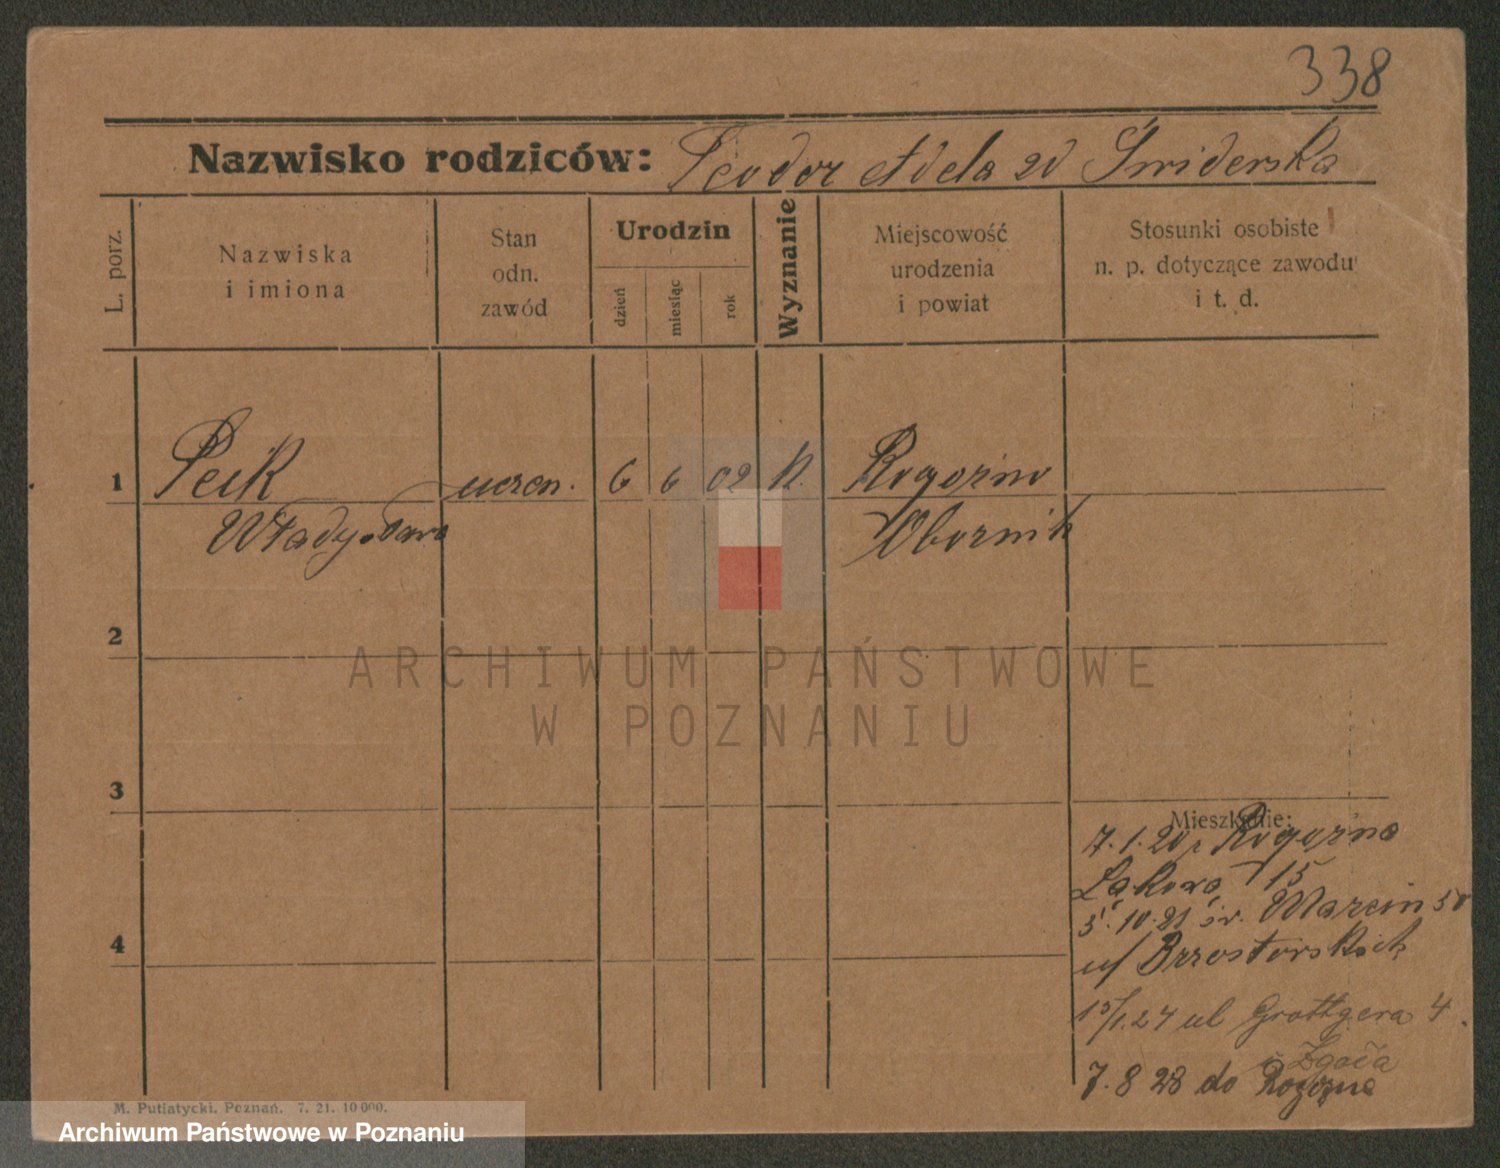 338
Nazwisko rodziców: Teodor Adela zd Świderska
L. porz.
Nazwiska
i imiona
Stan
odn.
zawód
Urodzin
dzień
miesiąc
rok
Wyznanie
Miejscowość
urodzenia
i powiat
Stosunki osobiste
n. p. dotyczące zawodu
i t. d.
1 Peik uczen. 6 6 02 k. Rogoźno
Władysława Obornik
2
ARCHIWUM PAŃSTWOWE
W POZNANIU
3
Mieszkanie:
7.1.20 Rogoźno
Łąkowa 15
5.10.21 św. Marcin 50
u/
4
15/1.27 ul Grottgera 4.
7.8 28 do Rogoźna
M. Putiatycki, Poznań. 7. 21. 10 000.
Archiwum Państwowe w Poznaniu